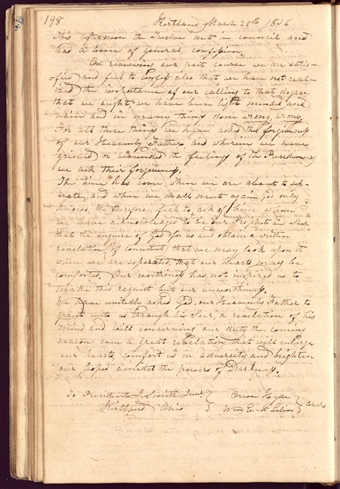 198
Kirtland March 28th 1836
This afternoon the Twelve met in council and
had a time of general confession.
On reviewing our past course we are satis-
fied and feel to confess also that we have not real-
ized the importance of our calling to that degree
that we ought, we have been light minded and
vain and in many things done wrong, wrong.
For all these things we have asked the forgiveness
of our Heavenly Father, and wherein we have
grieved or wounded the feelings of the Presidency
we ask their forgiveness.
The time has come when we are about to sep-
erate, and when we shall meet again God only
knows. We therefore feel to ask of him whom
we have acknowledged to be our Prophet and Seer
that he inquire of God for us and obtain a written
revelation (if consistent) that we may look upon it
when we are seperated, that our hearts may be
comforted. Our worthiness has not inspired us to
make this request but our unworthiness.
We have unitedly asked God our Heavenly Father to
grant unto us through his Seer, a revelation of his
mind and will concerning our duty the coming
season even a great revelation that will enlarge
our hearts, comfort us in adversity and brighten
our hopes amidst the powers of Darkness.
To President J. Smith Junr. Orson Hyde
Kirtland Ohio Wm E. McLellin Clerks